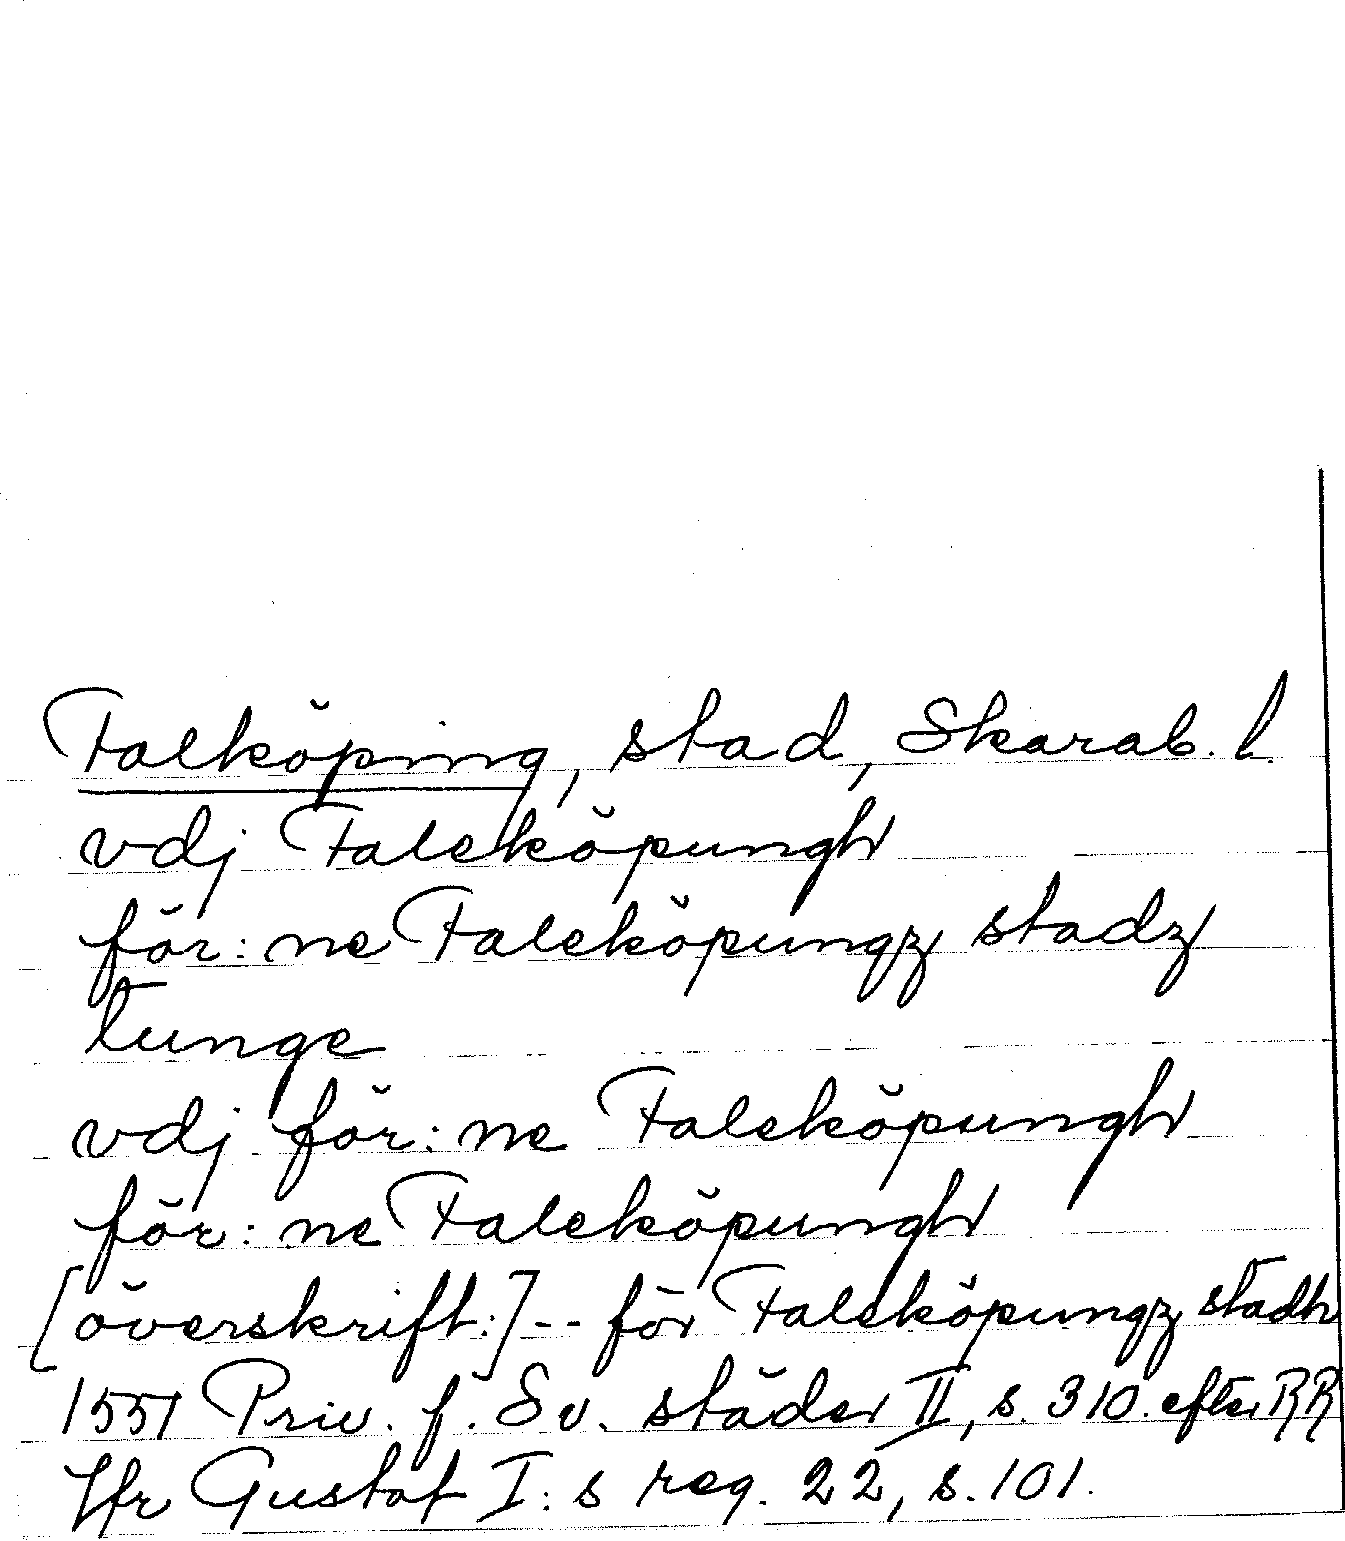 Falköping, stad, Skarab. l.
vdj Faleköpungh
för: ne Faleköpungz stadz
tunge
vdj för: ne Faleköpungh
för: ne Faleköpungh
[överskrift:] -- för Faleköpungz stadh
1551 Priv. f. Sv. städer II, s. 310. efter RR
Jfr Gustaf I: s reg. 22, s. 101.